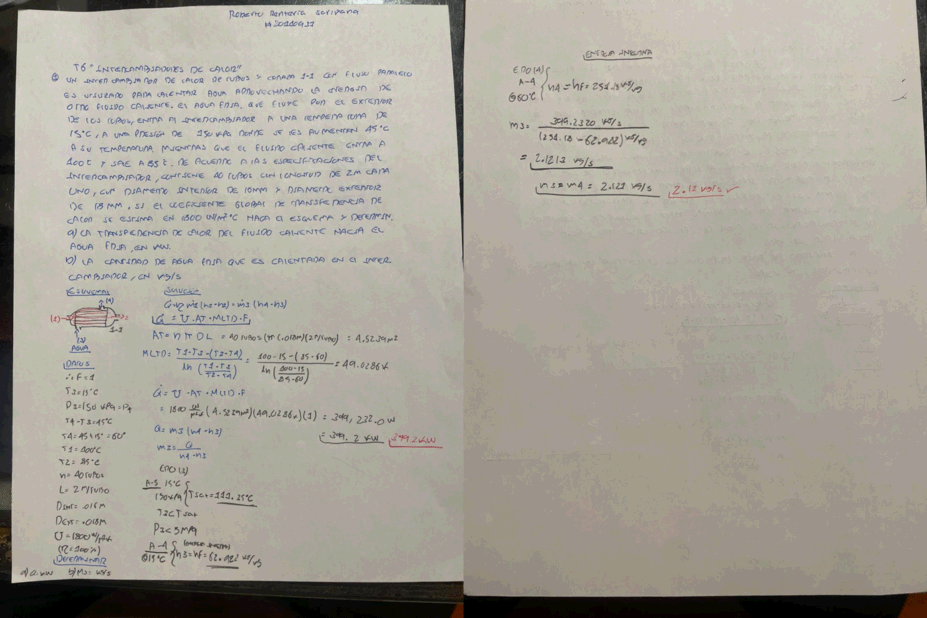 Roberto Rentería
T6 "INTERCAMBIADORES DE CALOR"
UN INTERCAMBIADOR DE CALOR DE TUBOS Y CORAZA 1-1 CON FLUJO PARALELO
ES UTILIZADO PARA CALENTAR AGUA APROVECHANDO LA ENERGIA DE
OTRO FLUIDO CALIENTE. EL AGUA FRIA, QUE FLUYE POR EL EXTERIOR
DE LOS TUBOS, ENTRA A INTERCAMBIADOR A UNA TEMPERATURA DE
15°C, A UNA PRESION DE 150 kPa DONDE SE LES AUMENTAN 45°C
A SU TEMPERATURA MIENTRAS QUE EL FLUIDO CALIENTE ENTRA A
100°C Y SALE A 85°C. DE ACUERDO A LAS ESPECIFICACIONES DEL
INTERCAMBIADOR, CONTIENE 40 TUBOS CON LONGITUD DE 2M CADA
UNO, CUYO DIAMETRO INTERIOR DE 16MM Y DIAMETRO EXTERIOR
DE 18 MM, SI EL COEFICIENTE GLOBAL DE TRANSFERENCIA DE
CALOR SE ESTIMA EN 1800 W/M²°C HAGA EL ESQUEMA Y DETERMINE.
a) LA TRANSFERENCIA DE CALOR DEL FLUIDO CALIENTE HACIA EL
AGUA FRIA, EN kW.
b) LA CANTIDAD DE AGUA FRIA QUE ES CALENTADA EN EL INTER
CAMBIADOR, EN kg/s
ESQUEMA
(4)
(1)
2
1-1
(3)
AGUA
DATOS
∴ F = 1
T3=15°C
P3=150 kPa=P4
T4-T3=45°C
T4=45+15=60°
T1=100°C
T2=85°C
n=40 TUBOS
L=2M/TUBO
Dint=.016M
Dext=.018M
(n=100%)
DETERMINAR
a) Q. kW b) M3= kg/s
SOLUCIÓN
Q=U·AT·MLTD·F
AT=nπDL = 40 TUBOS(π(.018M)(2M/TUBO) = 4.5239M²
MLTD= T1-T3-(T2-T4) / ln(T1-T3/T2-T4) = 100-15-(85-60) / ln(100-15/85-60) = 49.0286K
Q=U·AT·MLTD·F
(4.5239M²)(49.0286K)(1) = 399,232.0W
=399.2 kW 399.2 kW
Q=m3(h4-h3)
m3= Q / h4-h3
EDO(3)
A-5 15°C
150kPa Tsat=111.35°C
T3<Tsat
P3<5MPa
A-4
@15°C h3=hf=62.982 kJ/kg
ENERGIA INTERNA
EDO(4)
A-4
@60°C h4=hf=251.18 kJ/kg
m3= 399.2320 kJ/s / (251.18-62.982)kJ/kg
= 2.1213 kg/s
m3=m4= 2.121 kg/s 2.12 kg/s ✓